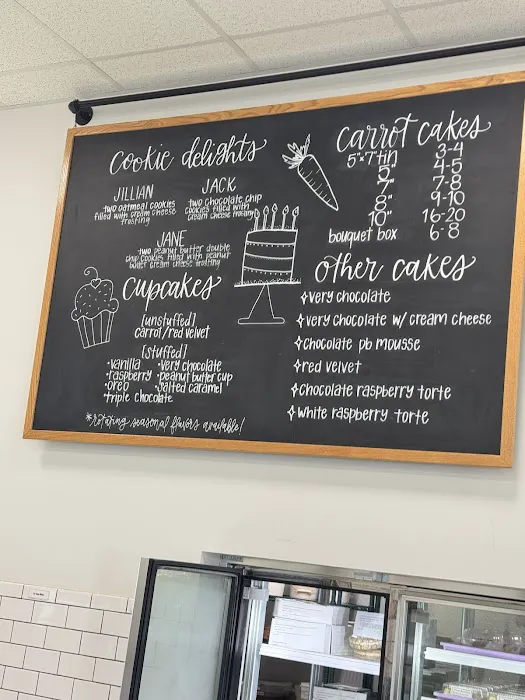 cookie delights
JILLIAN
two oatmeal cookies
filled with cream cheese
frosting
JACK
two chocolate chip
cookies filled with
cream cheese frosting
JANE
two peanut butter double
chip cookies filled with peanut
butter cream cheese frosting
cupcakes
[unstuffed]
carrot/red velvet
[stuffed]
•vanilla •very chocolate
•raspberry •peanut butter cup
•oreo •salted caramel
•triple chocolate
*rotating seasonal flavors available!
carrot cakes
5"x7" tin 3-4
5" 4-5
7" 7-8
8" 9-10
10" 16-20
bouquet box 6-8
other cakes
✧very chocolate
✧very chocolate w/ cream cheese
✧chocolate pb mousse
✧red velvet
✧chocolate raspberry torte
✧white raspberry torte